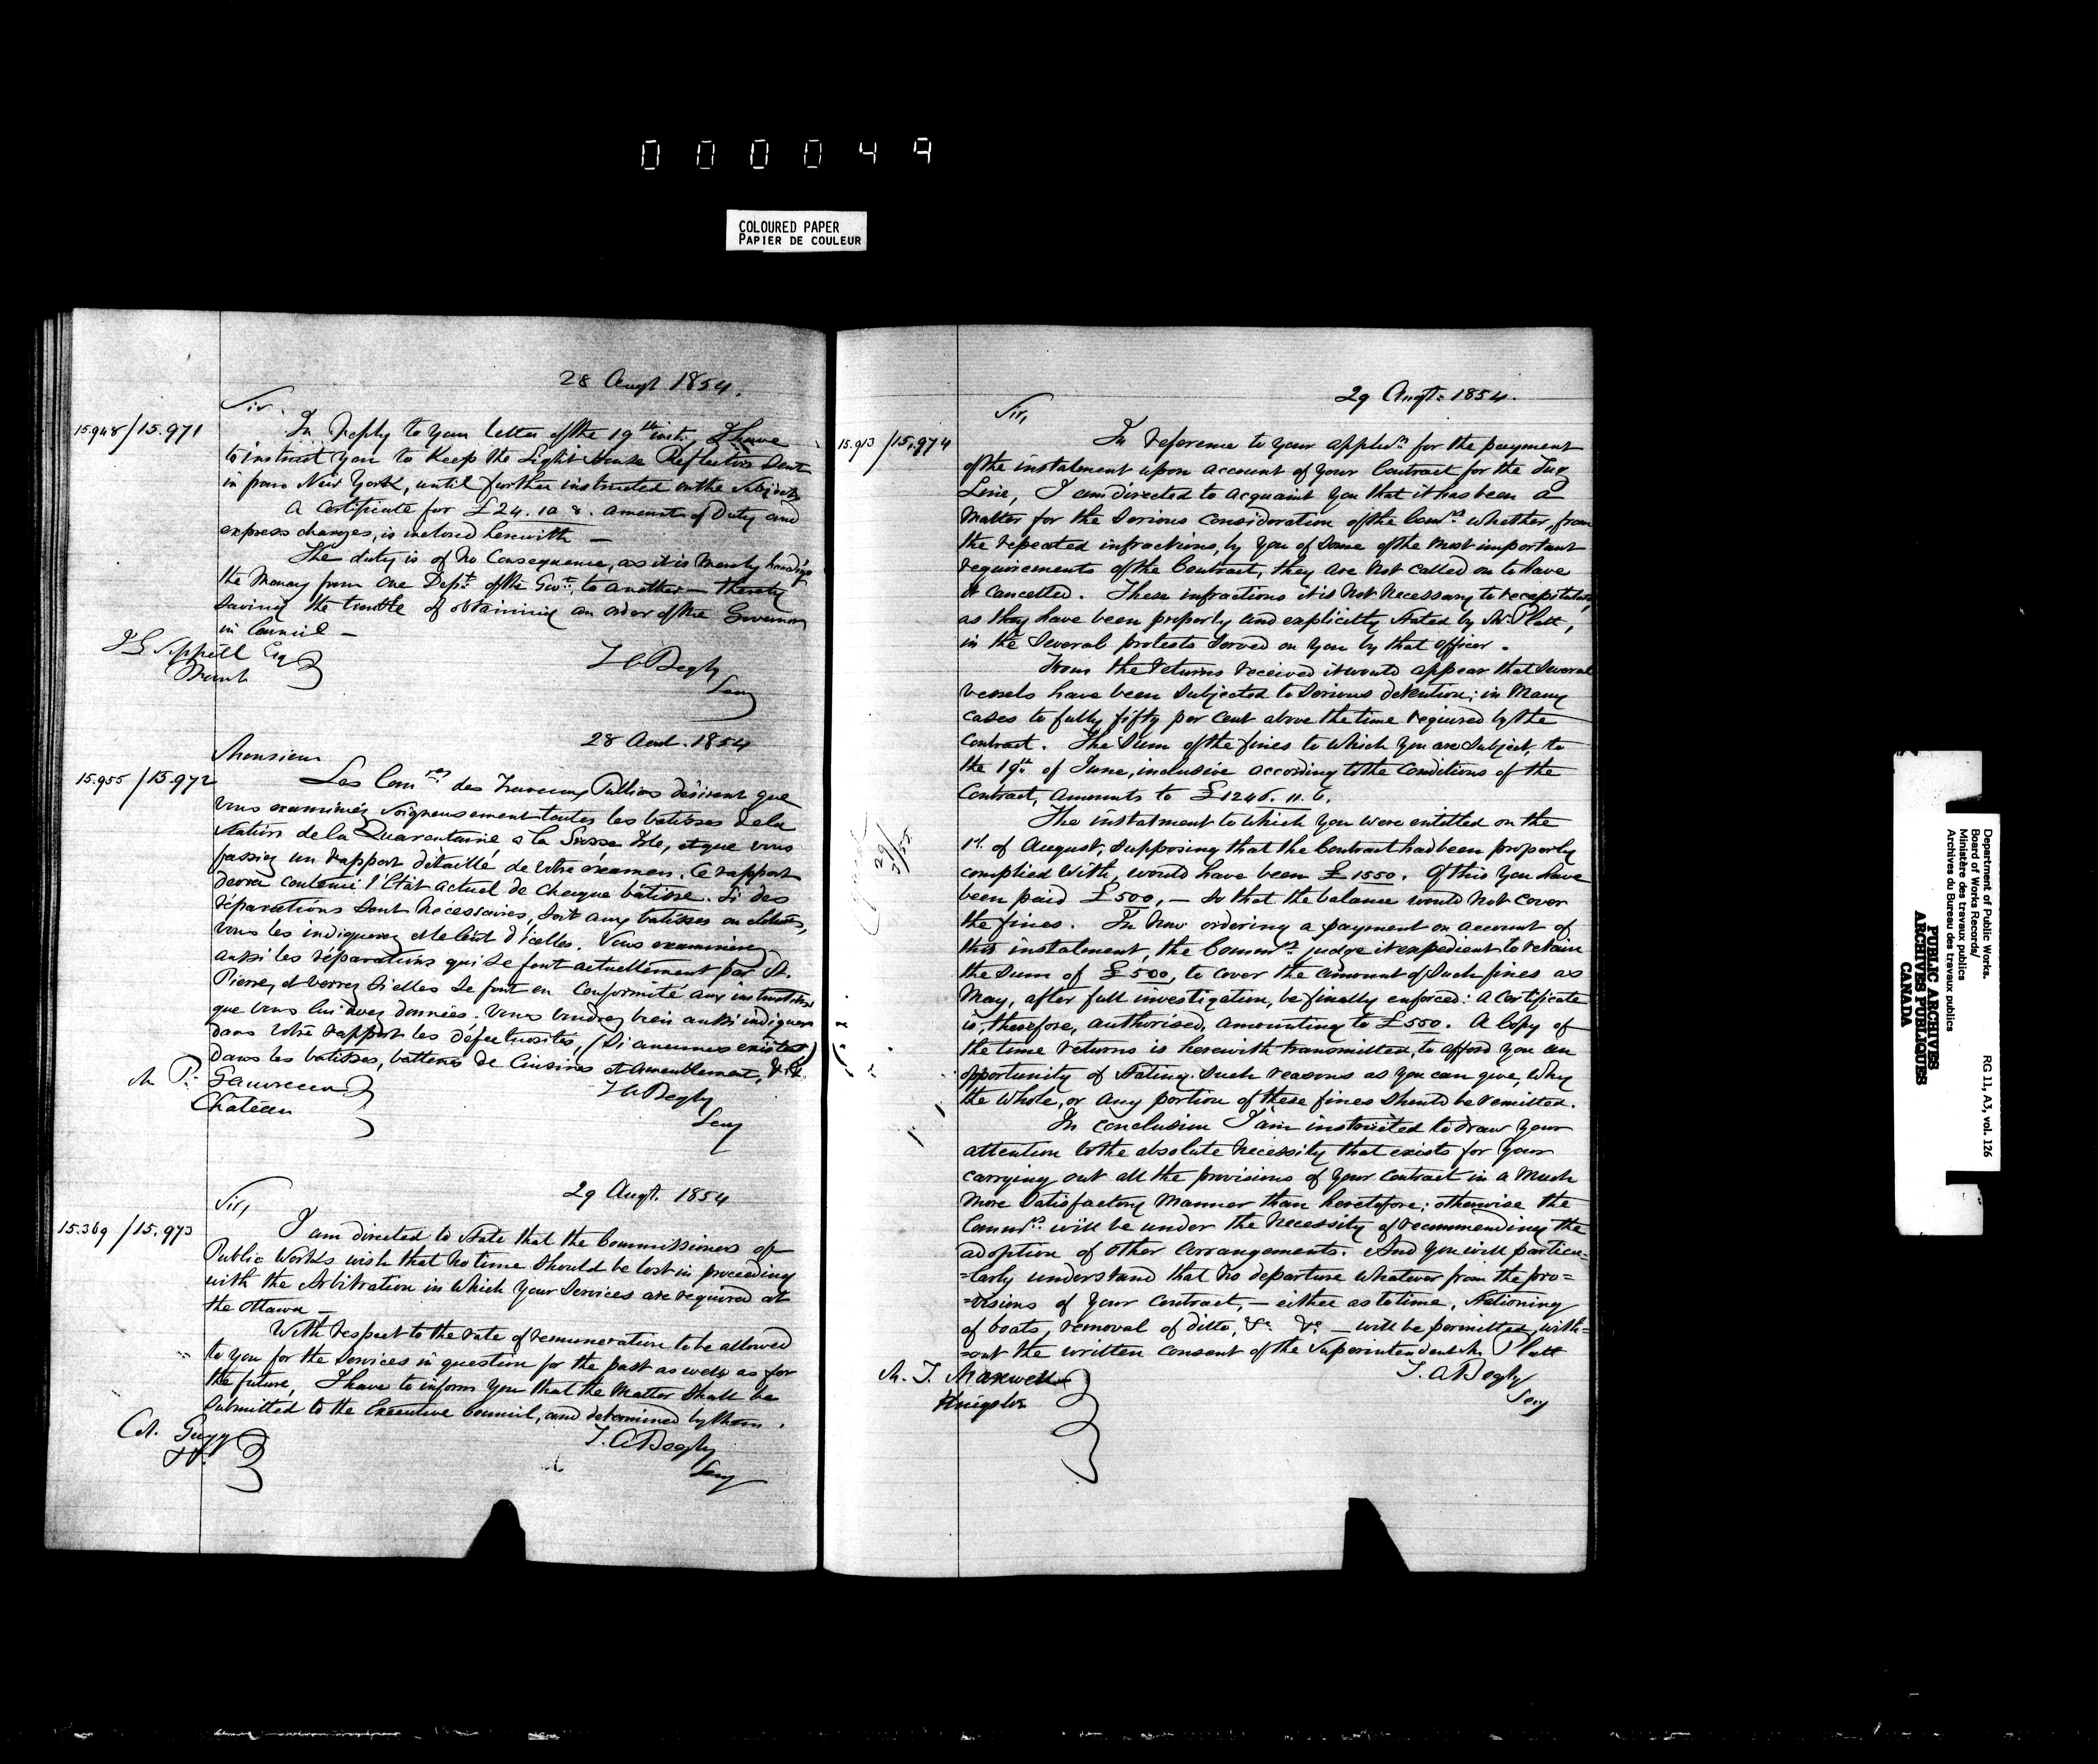 000049
COLOURED PAPER
PAPIER DE COULEUR
28 Augt 1854.
Sir.
15.948/15.971
In reply to your letter of the 19th inst., I have
to instruct you to keep the Light House Reflectors sent
in from New York, until further instructed on the subject
A Certificate for £24. 10 8. amount of Duty and
express charges, is inclosed herewith —
The duty is of no consequence, as it is merely handing
the money from one Dept. of the Govt. to another — thereby
saving the trouble of obtaining an order of the Governor
in Council —
Sippell Esq
T A Begly
Secy
28 Aout. 1854
Monsieur
15.955/15.972
Les Comres des Travaux Publics désirent que
vous examiniez soigneusement toutes les batisses de la
Station de la Quarantaine a la Grosse Isle, et que vous
fassiez un rapport détaillé de votre examen. Ce rapport
devra contenir l'état actuel de chaque bâtisse. Si des
réparations sont nécessaires, soit aux batisses ou clotures,
vous les indiquerez et le coût d'icelles. Vous examinerez
aussi les réparations qui se font actuellement par St.
Pierre, et verrez si elles se font en conformité aux instructions
que vous lui avez données. Vous voudrez bien aussi indiquer
dans votre rapport les défectuosités, (si aucunes existent)
dans les batisses, batteries de Cuisines et ameublement, &. &
M P. Gauvreau
Château
T A Begly
Secy
29 Augt. 1854
Sir,
15.369/15.973
I am directed to state that the Commissioners of
Public Works wish that no time should be lost in proceeding
with the Arbitration in which your services are required at
the Ottawa —
With respect to the rate of remuneration to be allowed
to you for the services in question for the past as well as for
the future, I have to inform you that the matter shall be
submitted to the Executive Council, and determined by them.
Col. Gugy
T. A Begly
Secy
29 Augt. 1854.
Sir,
15.913/15.974
In reference to your applicn. for the payment
of the instalment upon account of your Contract for the Tug
Line, I am directed to acquaint you that it has been a
matter for the serious consideration of the Comrs. whether, from
the repeated infractions, by you of some of the most important
requirements of the Contract, they are not called on to have
it cancelled. These infractions it is not necessary to recapitulate,
as they have been properly and explicitly stated by Mr. Platt,
in the several protests served on you by that officer.
From the returns received it would appear that several
vessels have been subjected to serious detention; in many
cases to fully fifty per cent above the time required by the
contract. The sum of the fines to which you are subject to
the 19th. of June, inclusive according to the conditions of the
Contract, amounts to £1246. 11. 6.
The instalment to which you were entitled on the
1st. of August, supposing that the Contract had been properly
complied with, would have been £1550. Of this you have
been paid £500, — so that the balance would not cover
the fines. In now ordering a payment on account of
this instalment, the Commrs. judge it expedient to retain
the sum of £500, to cover the amount of such fines as
may, after full investigation, be finally enforced: a certificate
is, therefore, authorised, amounting to £550. A Copy of
the time returns is herewith transmitted, to afford you an
opportunity of stating such reasons as you can give, why
the whole, or any portion of these fines should be remitted.
In conclusion I am instructed to draw your
attention to the absolute necessity that exists for your
carrying out all the provisions of your contract in a much
more satisfactory manner than heretofore; otherwise the
Commrs. will be under the necessity of recommending the
adoption of other arrangements. And you will particu=
=larly understand that no departure whatever from the pro=
=visions of your contract, — either as to time, stationing
of boats, removal of ditto, &c. &c. — will be permitted, with=
=out the written consent of the Superintendent Mr Platt
M. J. Maxwell
Kingston
T. A Begly
Secy
Department of Public Works.
Board of Works Records/
Ministère des travaux publics
Archives du Bureau des travaux publics
RG 11, A3, vol. 126
PUBLIC ARCHIVES
ARCHIVES PUBLIQUES
CANADA